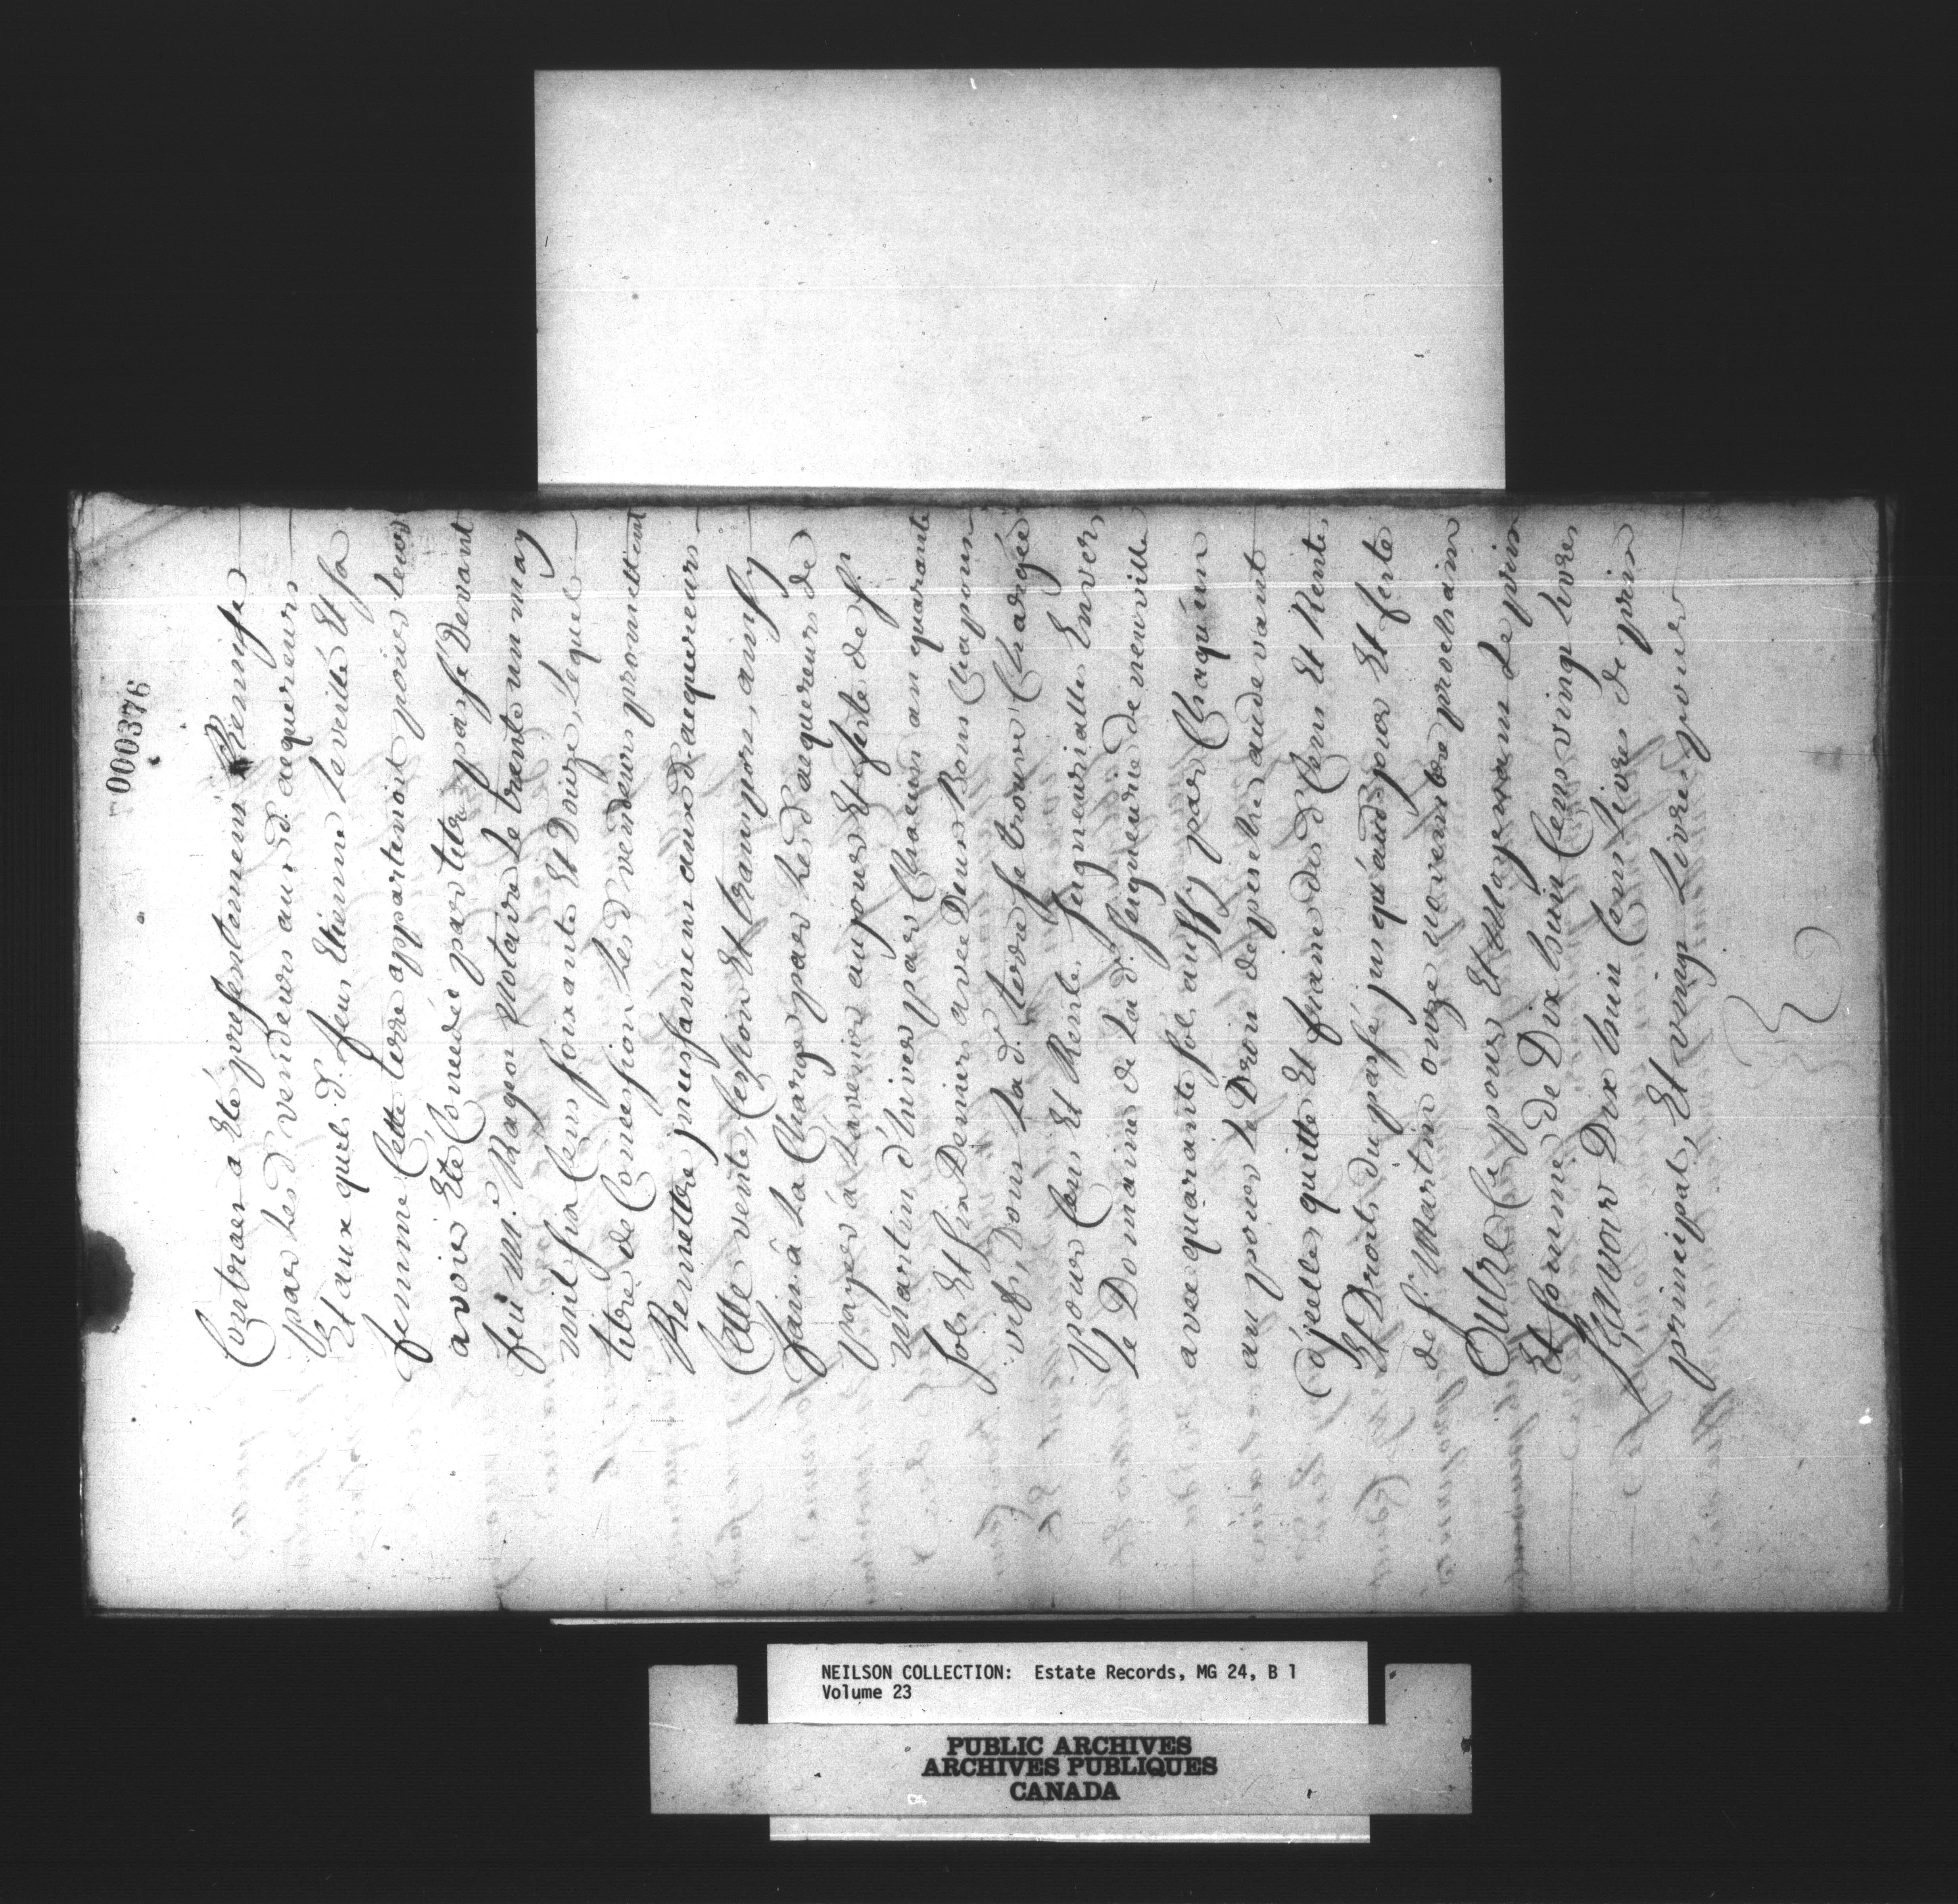 000376
Contract a Eté presentement Remise
par Lesd. vendeurs aux d. acquereurs
Et aux quels d. feus Etienne Leveillé Et sa
femme Cette terre appartenoit pour leur
avoir Eté Concedée par titre passé Devant
feu Me. Rageot Notaire Le trente un may
mil sia Cens soixante Et Douze, Lequel
titre de Concession Lesd. vendeurs promettent
Remettre puissamment aux d. acquereurs
Cette vente, Cession Et transport, ainsy
fait à La Charge par Lesd acquereurs de
payer à L'avenir au jour Et feste de St.
Martin d'hiver par Chacun an quarante
sols Et six Deniers avec Deux Bons Chapons
vifs, Dont La de. terre se trouve Chargée
pour Cens Et Rente Seigneurialle Envers
le Domaine de La d. Seigneurie de neuville
avec quarante sol aussy par Chaqu'un
an pour Le Droit de pesche au devant
d'jcelle, quitte Et franc des d. Cens Et Rentes
Et Droits du passé jusqu'aud. jour Et feste
de St. Martin onze novembre prochain
Outre Ce pour Et Moyennant Le prix
Et Somme de Dix huit Cens vingt livres
Sçavoir Dix huit Cens livres de prix
principal, Et vingt Livres pour
NEILSON COLLECTION: Estate Records, MG 24, B 1
Volume 23
PUBLIC ARCHIVES
ARCHIVES PUBLIQUES
CANADA